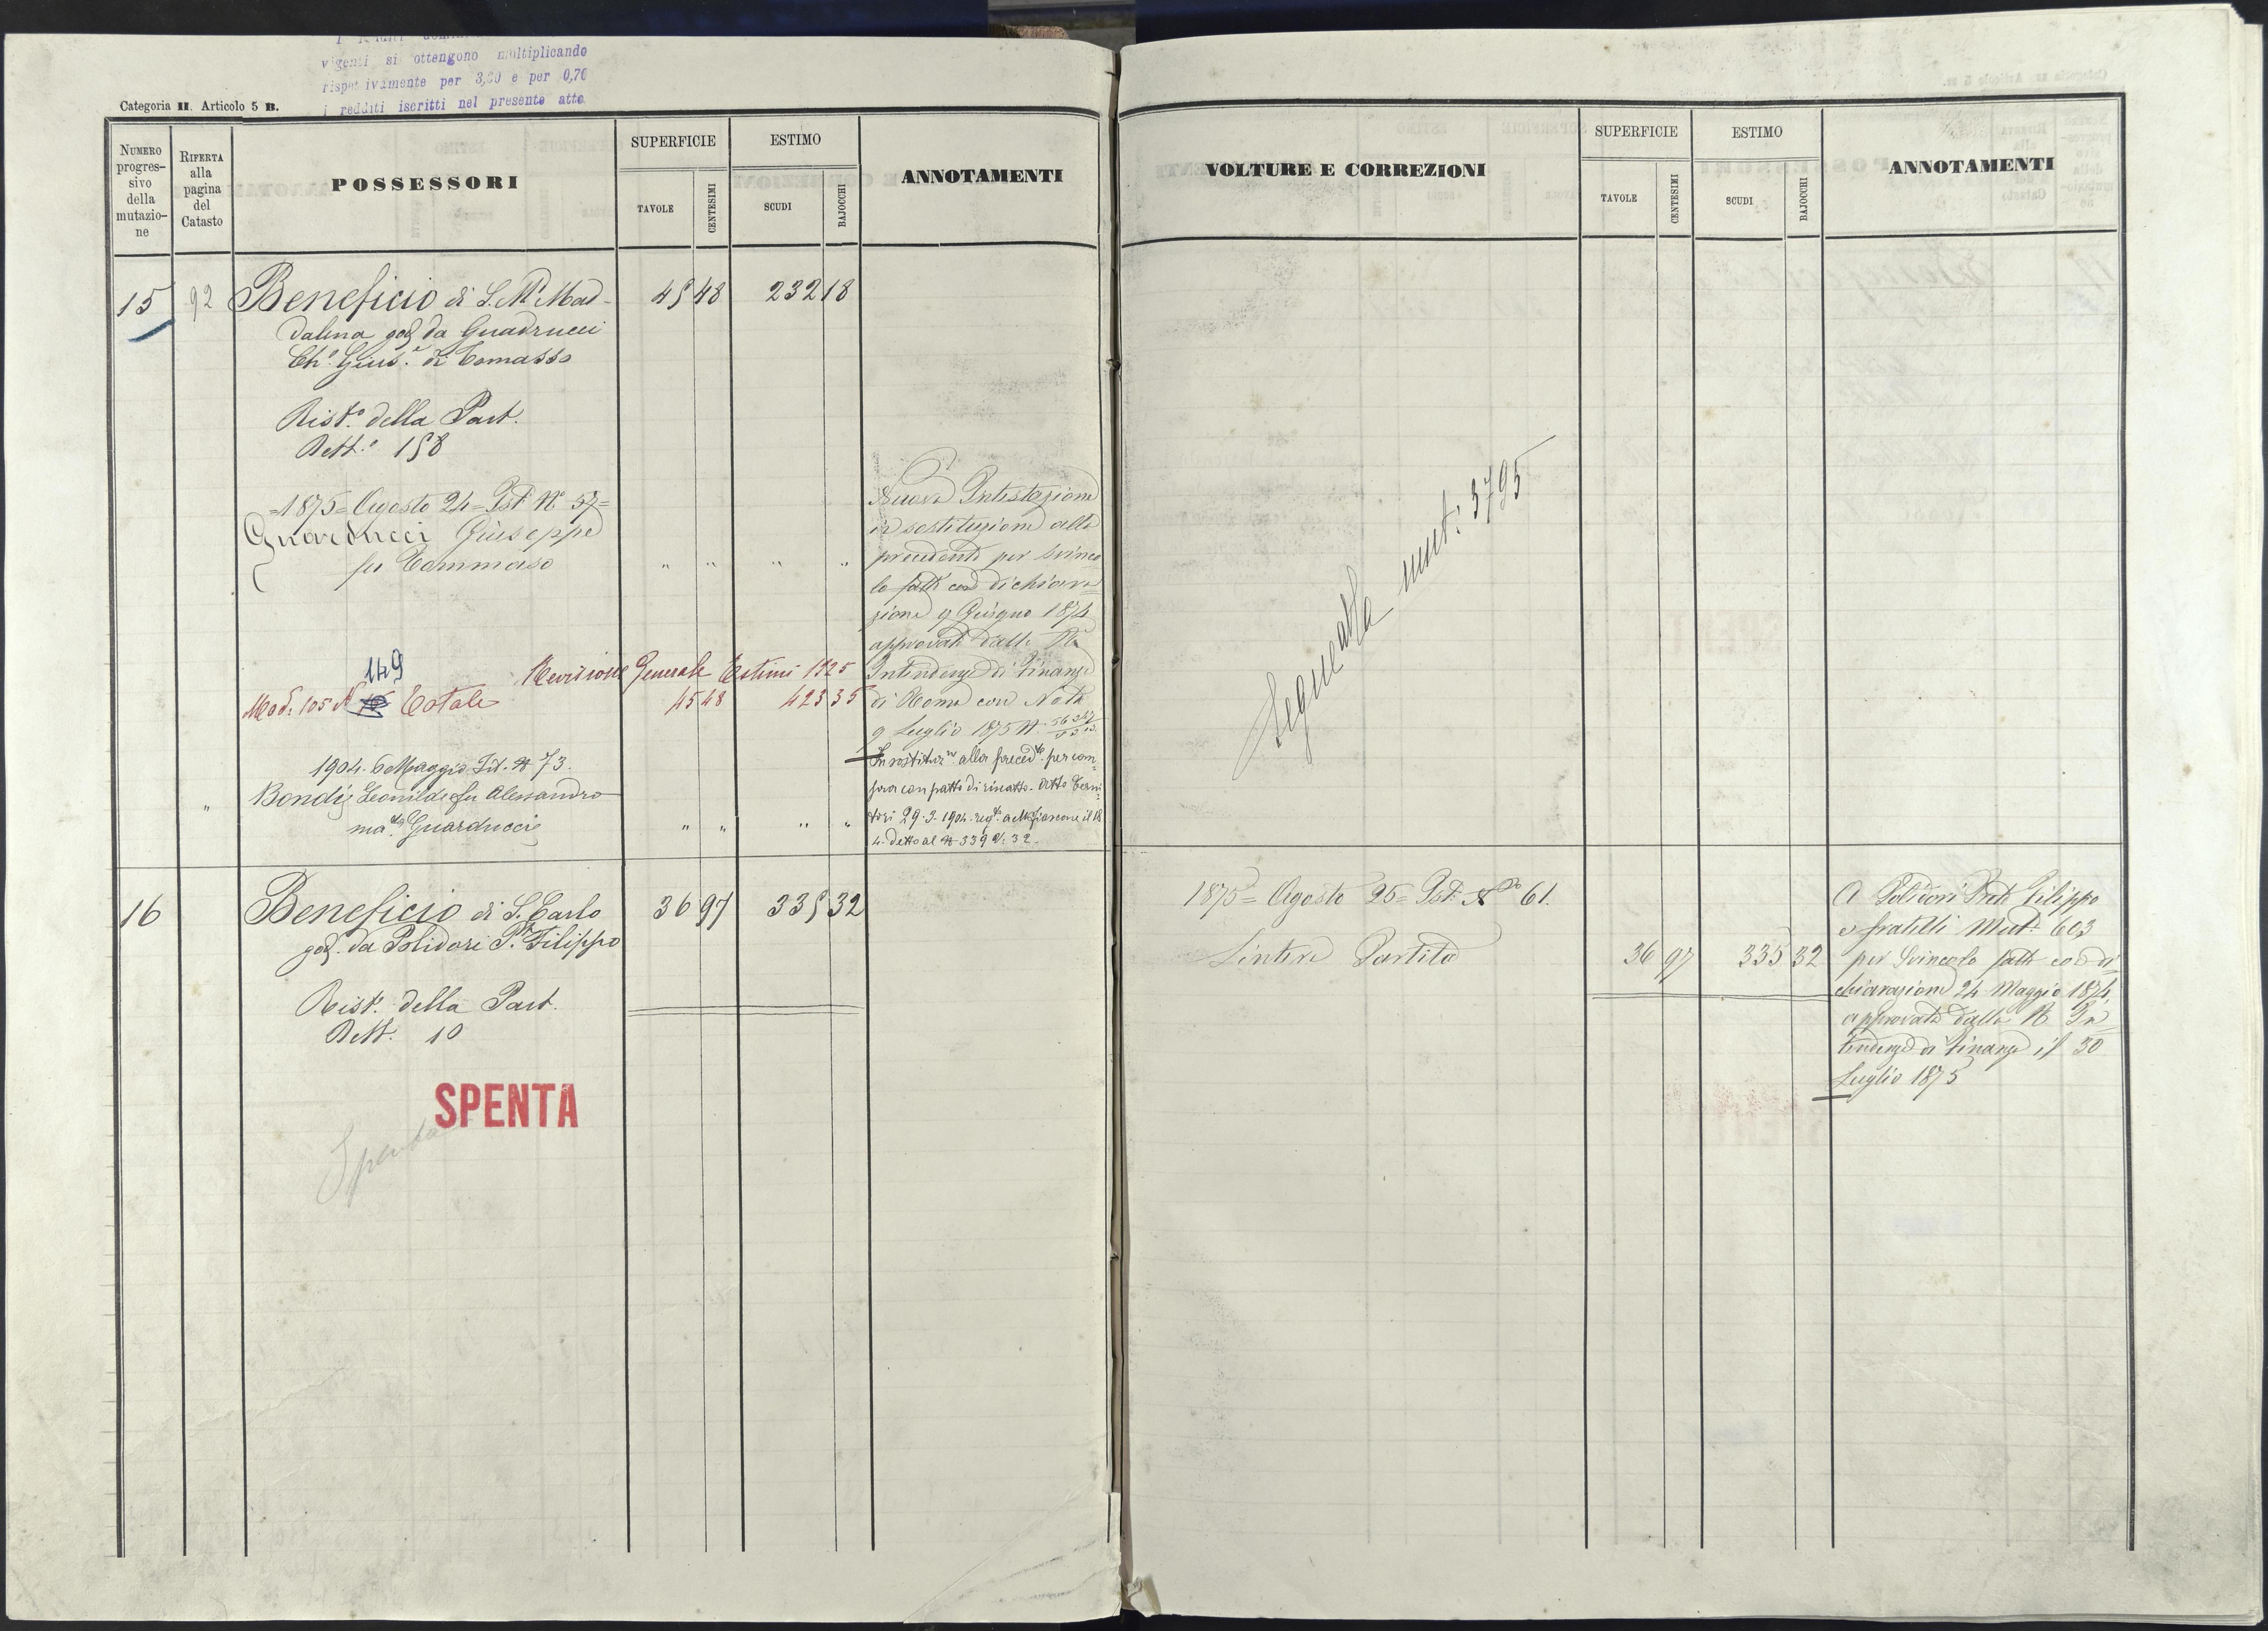 vigenti si ottengono moltiplicando
rispettivamente per 3,30 e per 0,76
i redditi iscritti nel presente atto.
Categoria II. Articolo 5 B.
NUMERO progres-sivo della mutazio-ne
RIFERTA alla pagina del Catasto
POSSESSORI
SUPERFICIE
TAVOLE
CENTESIMI
ESTIMO
SCUDI
BAJOCCHI
ANNOTAMENTI
15 92 Beneficio di S. Mª Mad- 45 48 232 18
dalena god. da Guadrucci
Ch.º Gius.e di Tomasso
Rist.º della Part.
Rett.º 158
=1875= Agosto 24= Ist. Nº 57=
Guarducci Giuseppe
fu Tommaso " " " "
Nuova Intestazione
in sostituzione alla
precedente per svinco
lo fatto con dichiara
zione 9 Giugno 1874
approvata dalla Rª
Intendenza di Finanza
di Roma con Nota
9 Luglio 1875 N.
149
Revisione Generale Estimi 1925
Mod. 105 N Totale 45 48 423 35
1904. 6 Maggio. Ist. N 73.
" Bondi Leonilde fu Alessandro
mar.ta Guarducci " " " "
In sostituz.ne alla preced.te per com-
pra con patto di riscatto. Atto
29.3.1904. reg.to a Mfiascone il 18
4. detto al N 339 V. 32.
16 Beneficio di S. Carlo 36 97 335 32
god. da Polidori P. Filippo
Rist.º della Part.
Rett. 10
SPENTA
Spenta
VOLTURE E CORREZIONI
SUPERFICIE
TAVOLE
CENTESIMI
ESTIMO
SCUDI
BAJOCCHI
ANNOTAMENTI
Segue alla mut: 3795
1875= Agosto 25= Ist. Nº 61.
L'intera Partita 36 97 335 32
A Polidori Prete Filippo
e fratelli Mut. 603
per Svincolo fatto con di
chiarazione 24 Maggio 1874
approvata dalla R In
tendenza di Finanza il 30
Luglio 1875